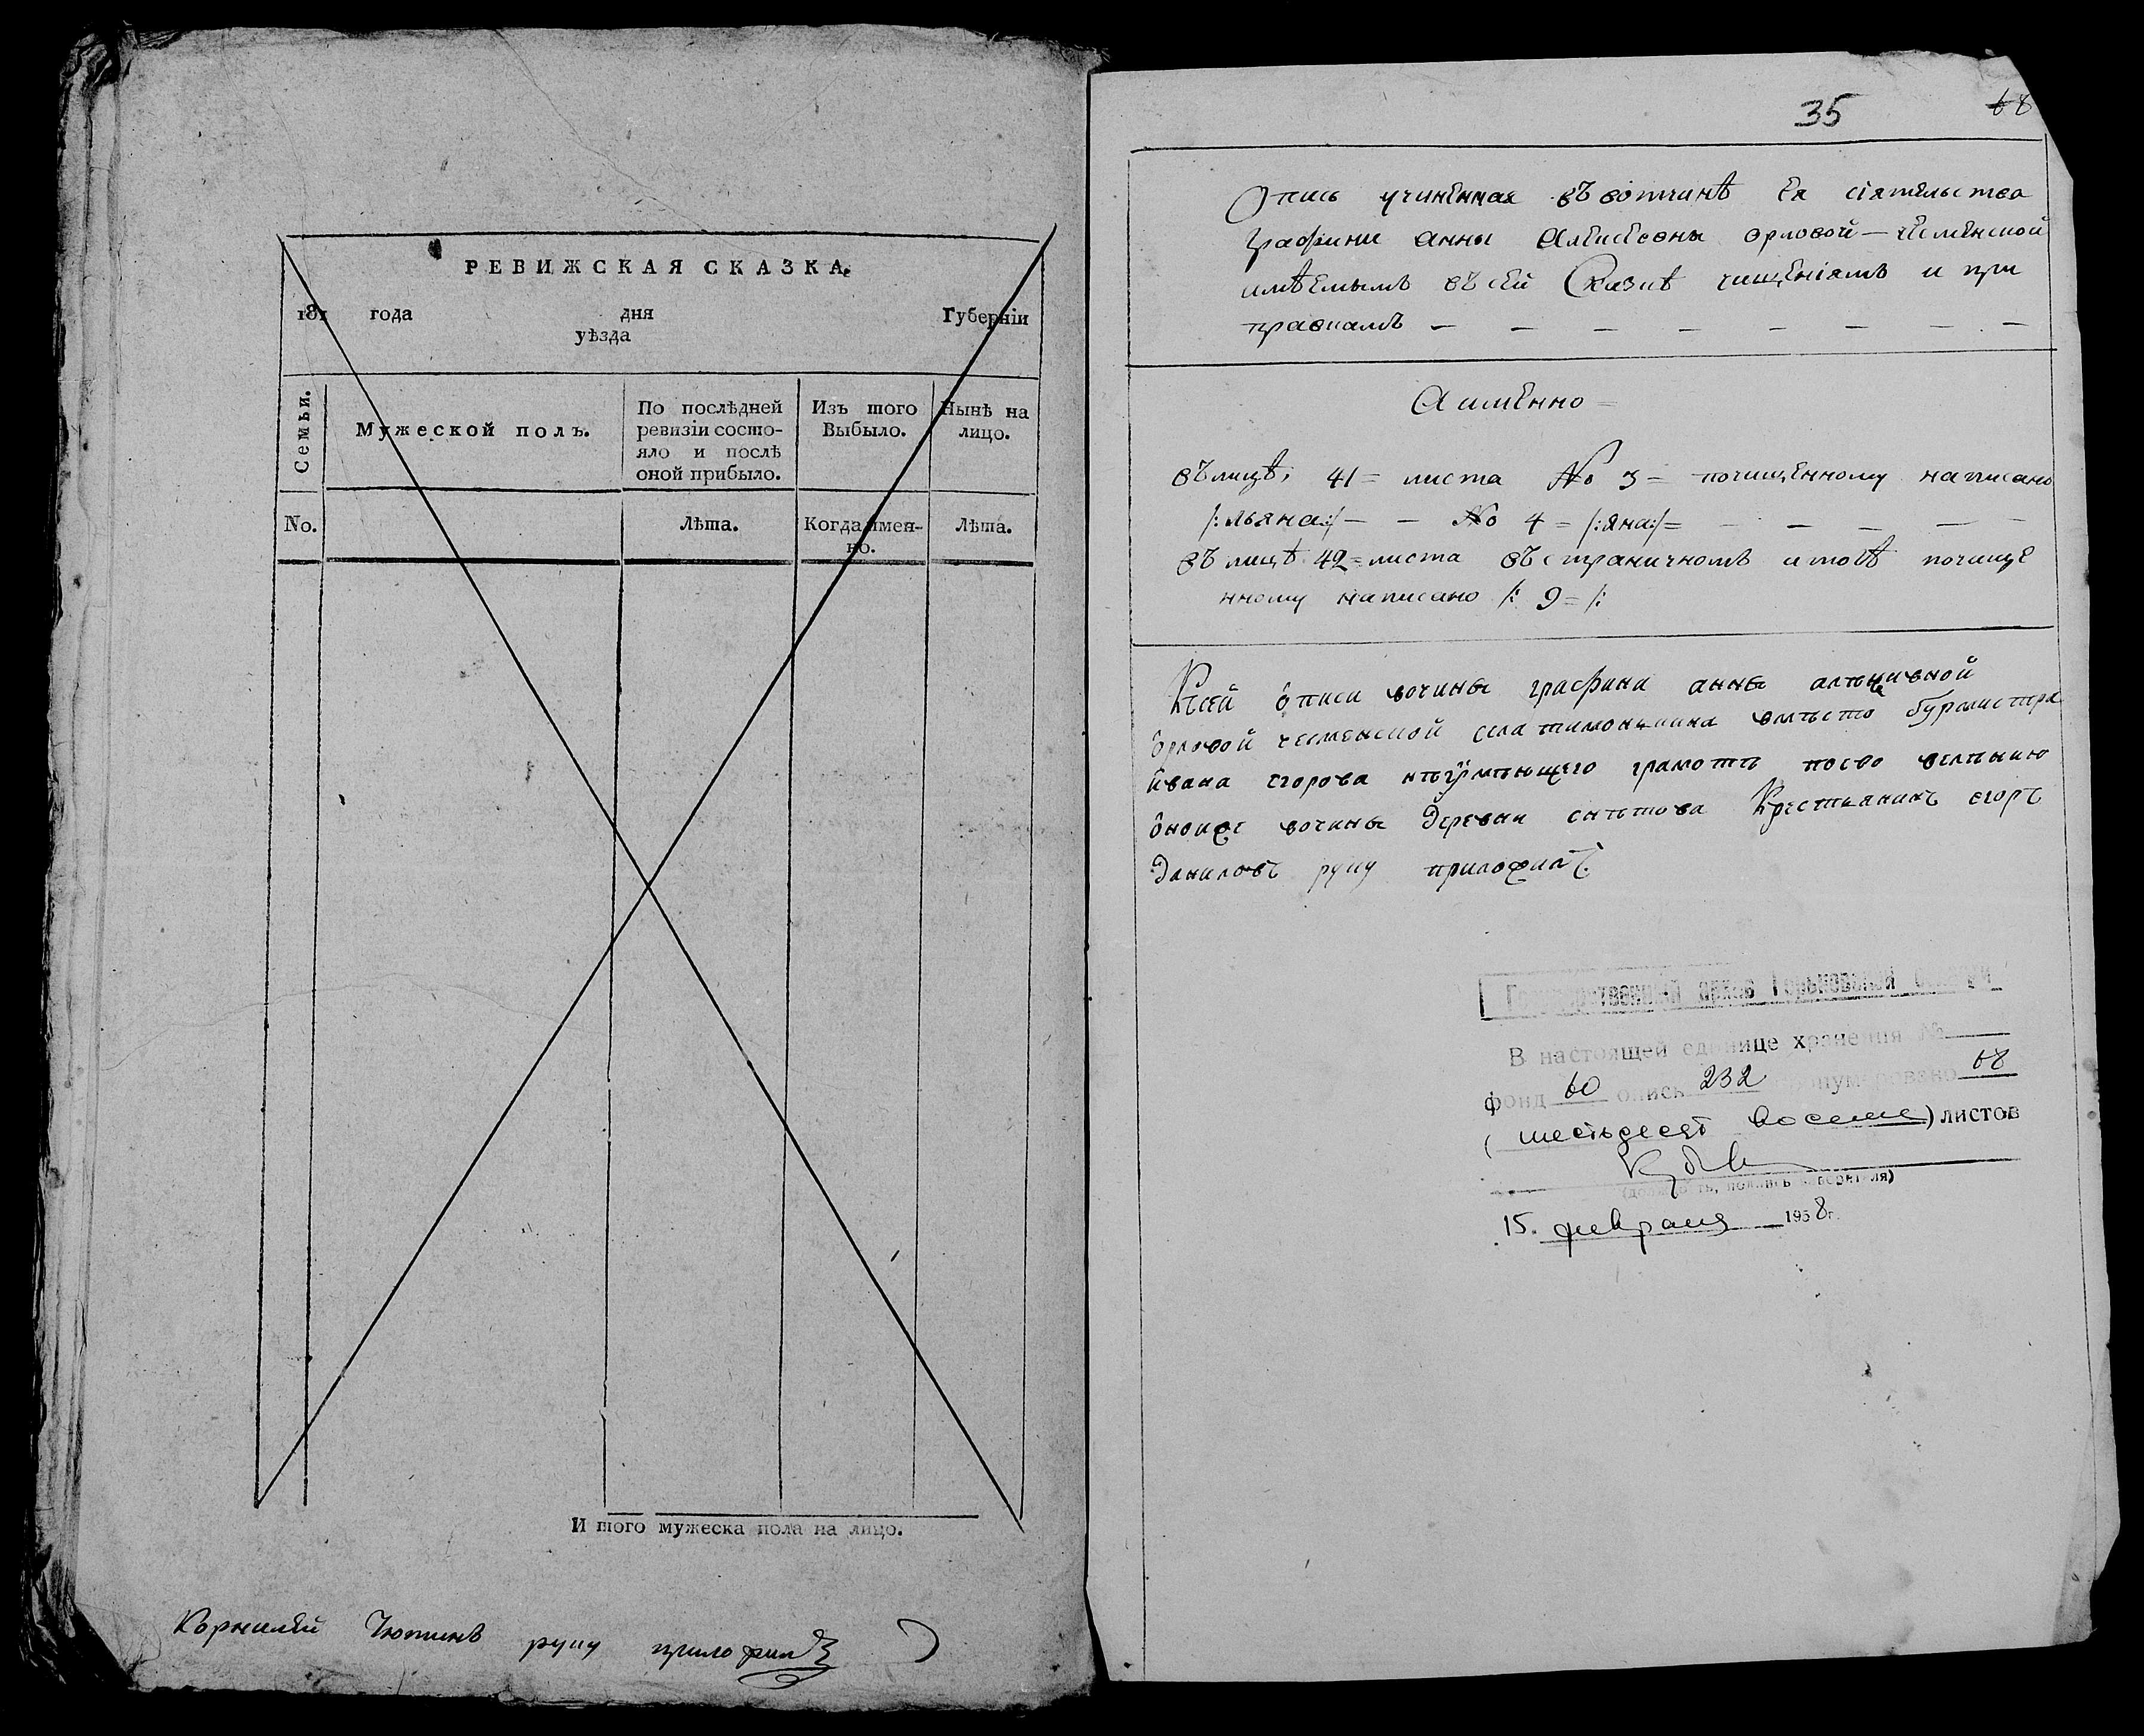 РЕВИЖСКАЯ СКАЗКА.
181 года дня Губерніи
уѣзда
Семьи.
Мужеской полъ.
По послѣдней
ревизіи состо-
яло и послѣ
оной прибыло.
Изъ того
Выбыло.
Нынѣ на
лицо.
No.
Лѣта.
Когда имен-
но.
Лѣта.
И того мужеска пола на лицо.
руку приложилъ
35 68
Опись учиненная въ вотчинѣ Ея сіятельства
Графини Анны Алексеевны орловой-чесменской
имѣемымъ въ сей Сказкѣ чищеніямъ и при
правкамъ — — — — — — — —
А именно =
въ лицѣ, 41 = листа № 3 = почищенному написано
/:льяна:/ — — № 4 = /:яна:/ = — — — — —
въ лицѣ 42 = листа въ страничномъ итогѣ почище
нному написано /: 9 = /:
Ксей описи вочины графини анны
орловой чесменской села вмѣсто бурмистра
ивана егорова неумѣющего грамотѣ по ево велѣнию
оной же вочины деревни Крестьянинъ егоръ
даниловъ руку приложилъ
Государственный архив Горьковской области
В настоящей единице хранения №
фонд 60 опись 232 пронумеровано 68
( шестьдесят восемь ) листов
(должность, подпись заверителя)
15. февраля 1958 г.